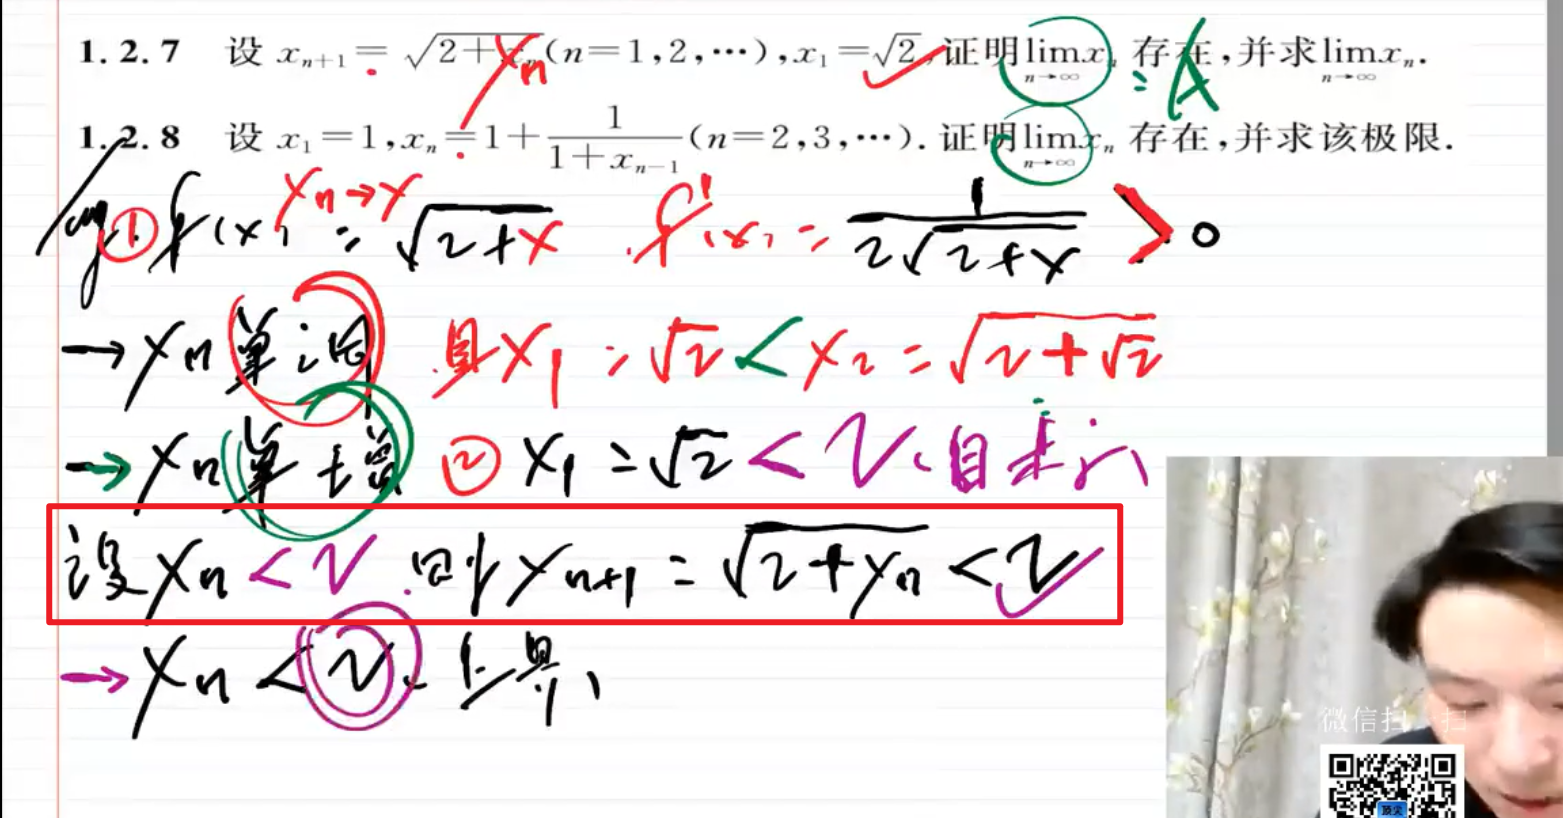 1.2.7 设 xₙ₊₁ = √(2+xₙ) (n=1,2,⋯), x₁=√2, 证明 lim(n→∞) xₙ 存在,并求 lim(n→∞) xₙ. = A
1.2.8 设 x₁=1, xₙ=1+1/(1+xₙ₋₁) (n=2,3,⋯). 证明 lim(n→∞) xₙ 存在,并求该极限.
① f(x) = √(2+x) xₙ→x f'(x) = 1/(2√(2+x)) > 0
→ xₙ 单调 且 x₁ = √2 < x₂ = √(2+√2)
→ xₙ 单增 ② x₁ = √2 < 2、
设 xₙ < 2. 则 xₙ₊₁ = √(2+xₙ) < 2
→ xₙ < 2、上界、
微信扫一扫
顶尖